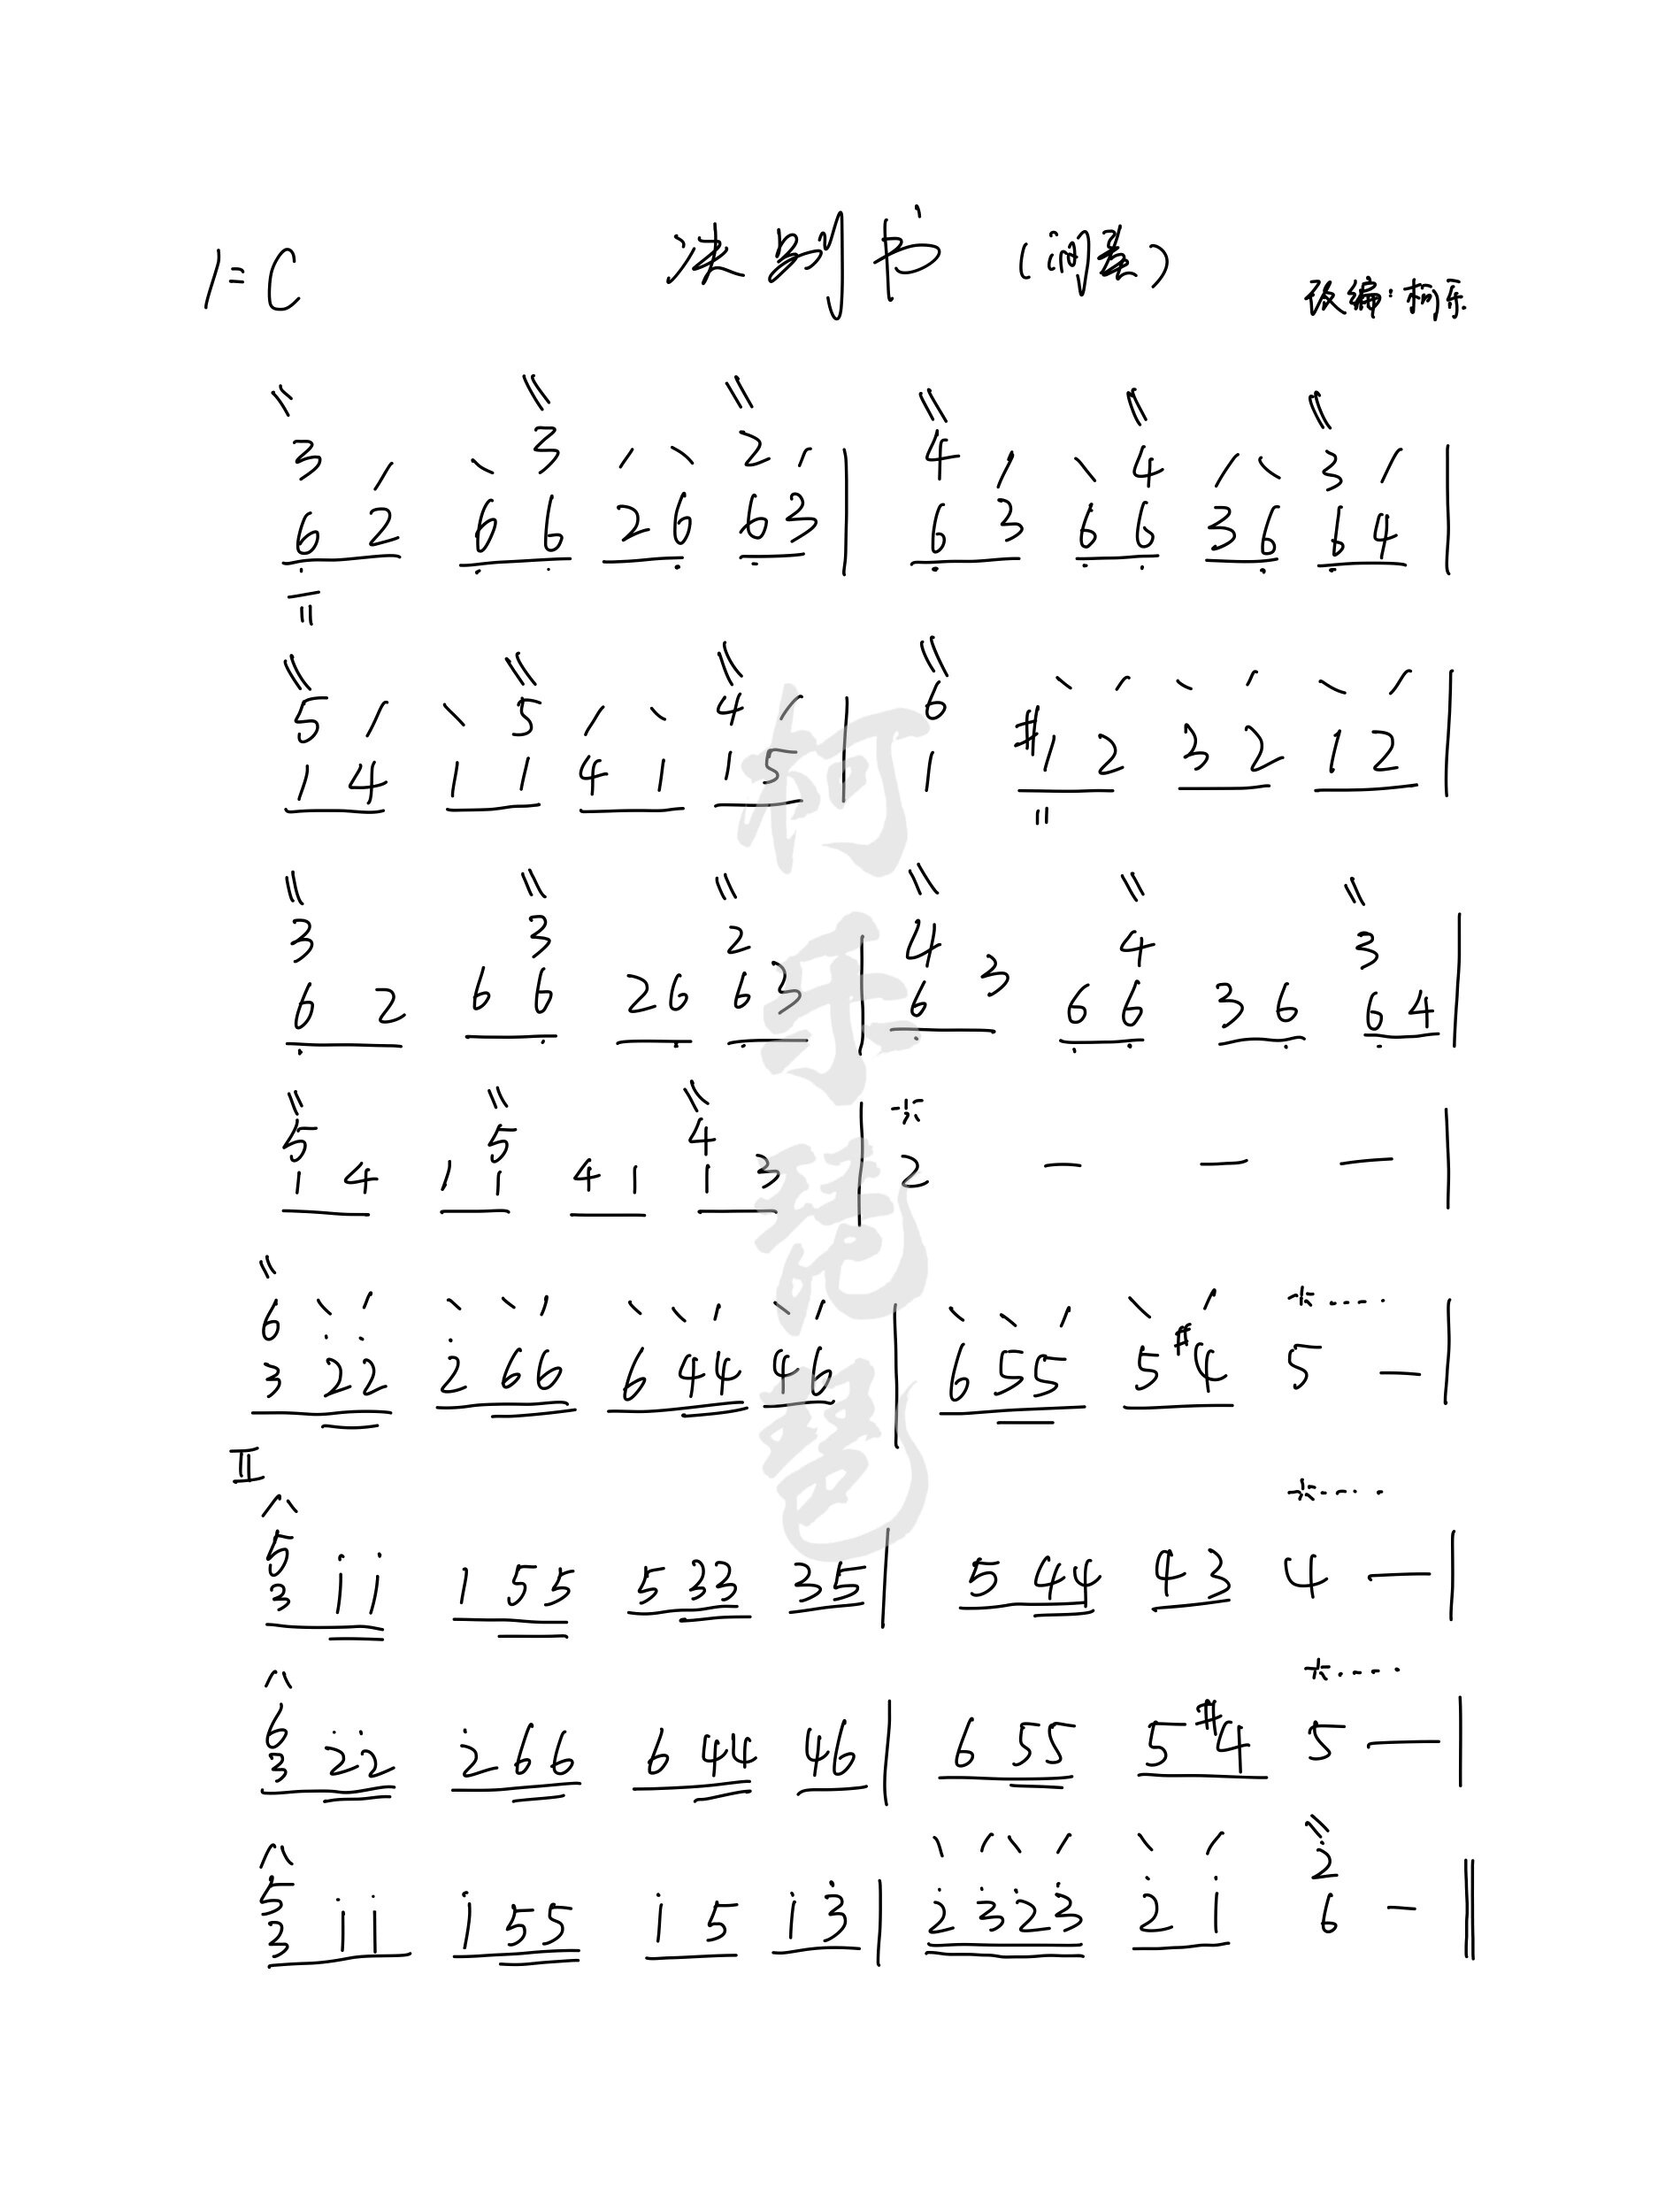 1=C 决别书 (闪奏)
改编·柯乐
3 3 2 4 4 3
6 2 6 6 2 6 6 3 | 6 3 6 6 3 6 6 4 |
5 5 4 6
1 4 1 1 4 1 1 5 | 1 #1 2 3 2 1 2 |
3 3 2 4 4 3
6 2 6 6 2 6 6 3 | 6 3 6 6 3 6 6 4 |
5 5 4
1 4 1 1 4 1 1 3 | 2 — — — |
6
3 2̇ 2̇ 2̇ 6 6 6 4 4 4 6 | 6 5 5 5 #4 5 — |
II
5
3 i i 1 5 5 5 3 3 3 5 | 5 4 4 4 3 4 — |
6
3 2̇ 2̇ 2̇ 6 6 6 4 4 4 6 | 6 5 5 5 #4 5 — |
5 2̇
3 i i i 5 5 i 5 i 3̇ | 2̇ 3̇ 2̇ 3̇ 2̇ i 6 — ||
柯乐琵琶